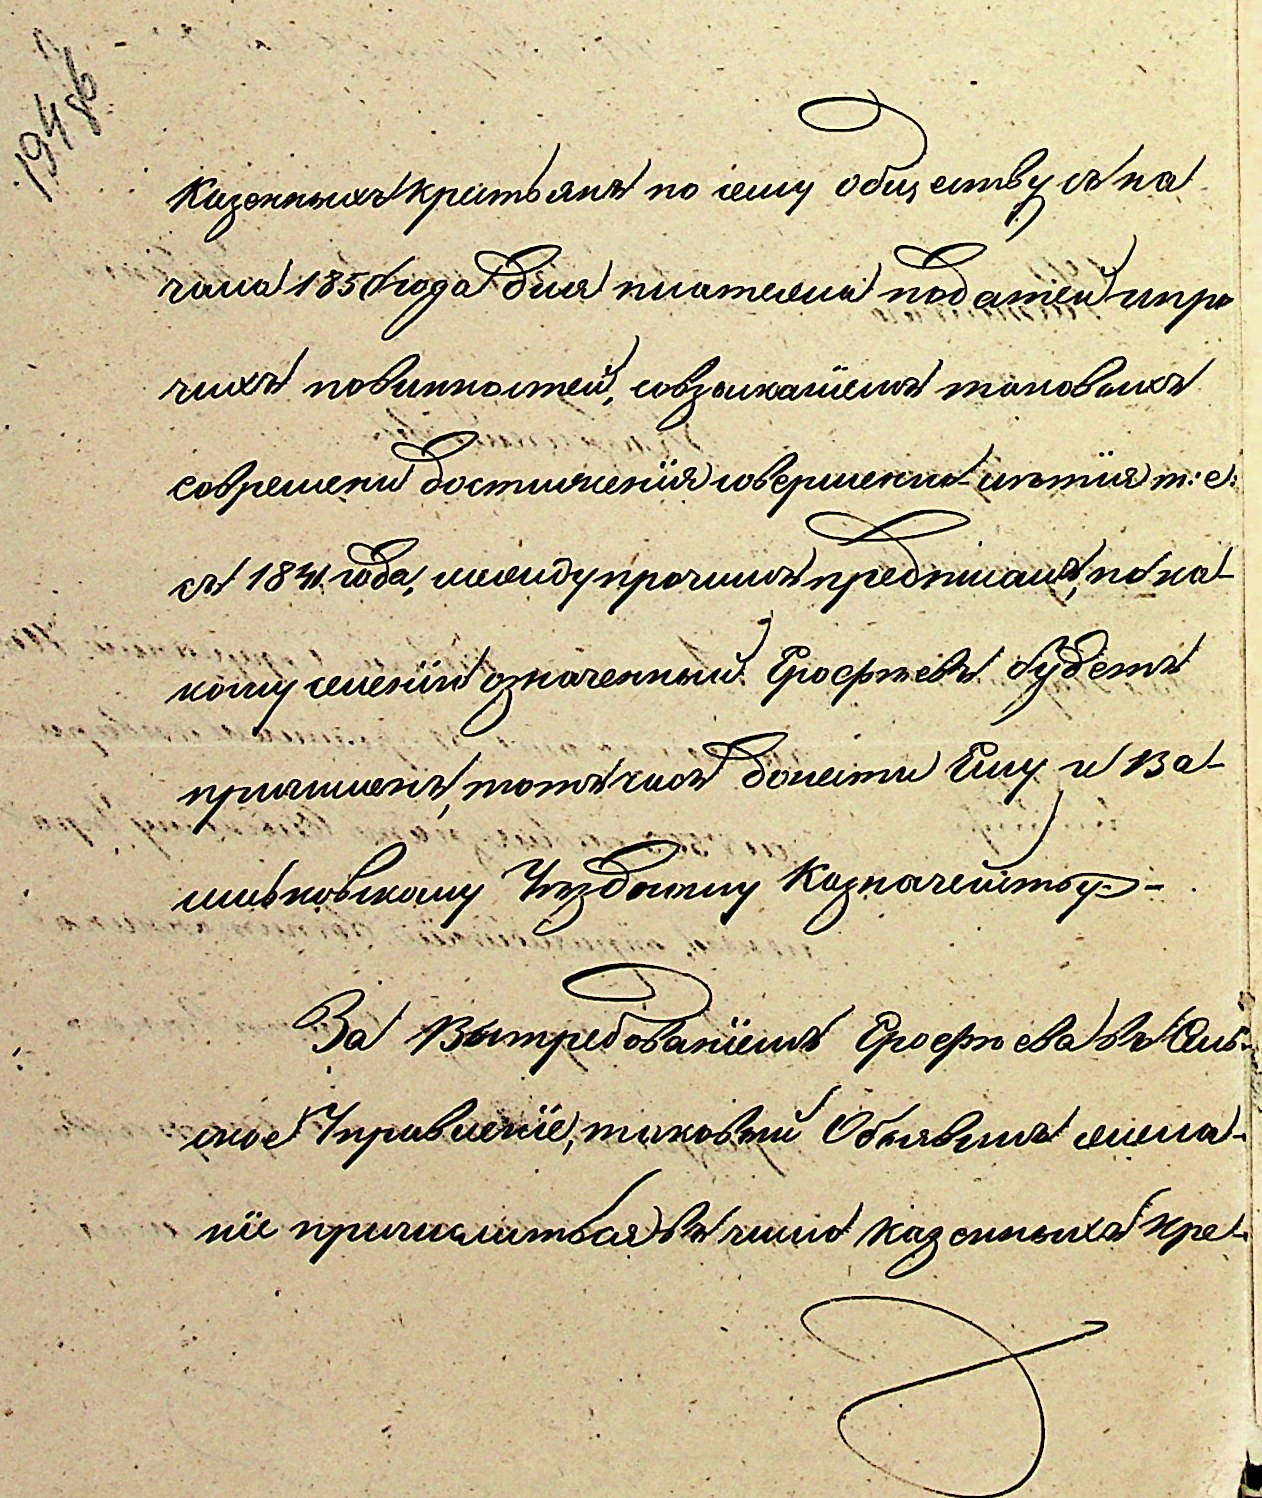 194 об
казенныхъ крестьянъ по сему обществу съ на
чала 1850 года для платежа податей и про
чихъ повинностей, со взысканіемъ таковыхъ
со времени достиженія совершеннолѣтія т: е:
съ года, между прочимъ предписалъ, по ка-
кому селенію означенный Ерофѣевъ будетъ
причисленъ, тотъ часъ донести Ему и Ва-
сильковскому Уѣздному Казначейству. -
За вытребованіемъ Ерофѣева въ Сель-
ское Управленіе, таковый объявилъ жела-
ніе причислиться въ число казенныхъ кре-